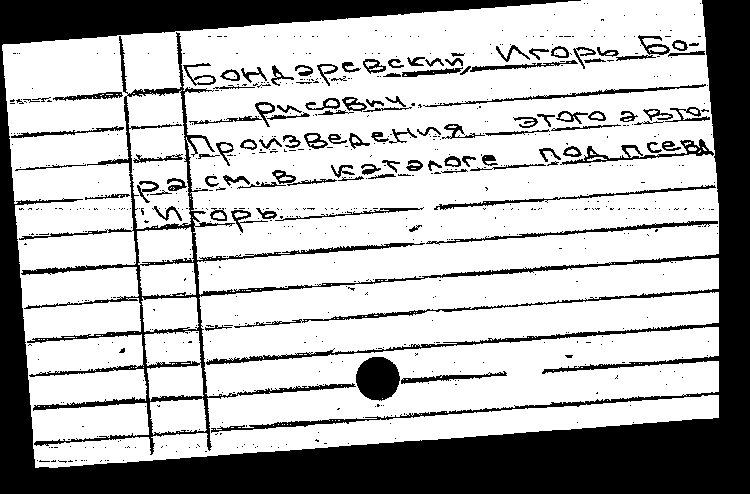 Бондаревский, Игорь Бо-
рисович.
Произведения этого авто-
ра см. в каталоге под псевд
: Игорь.